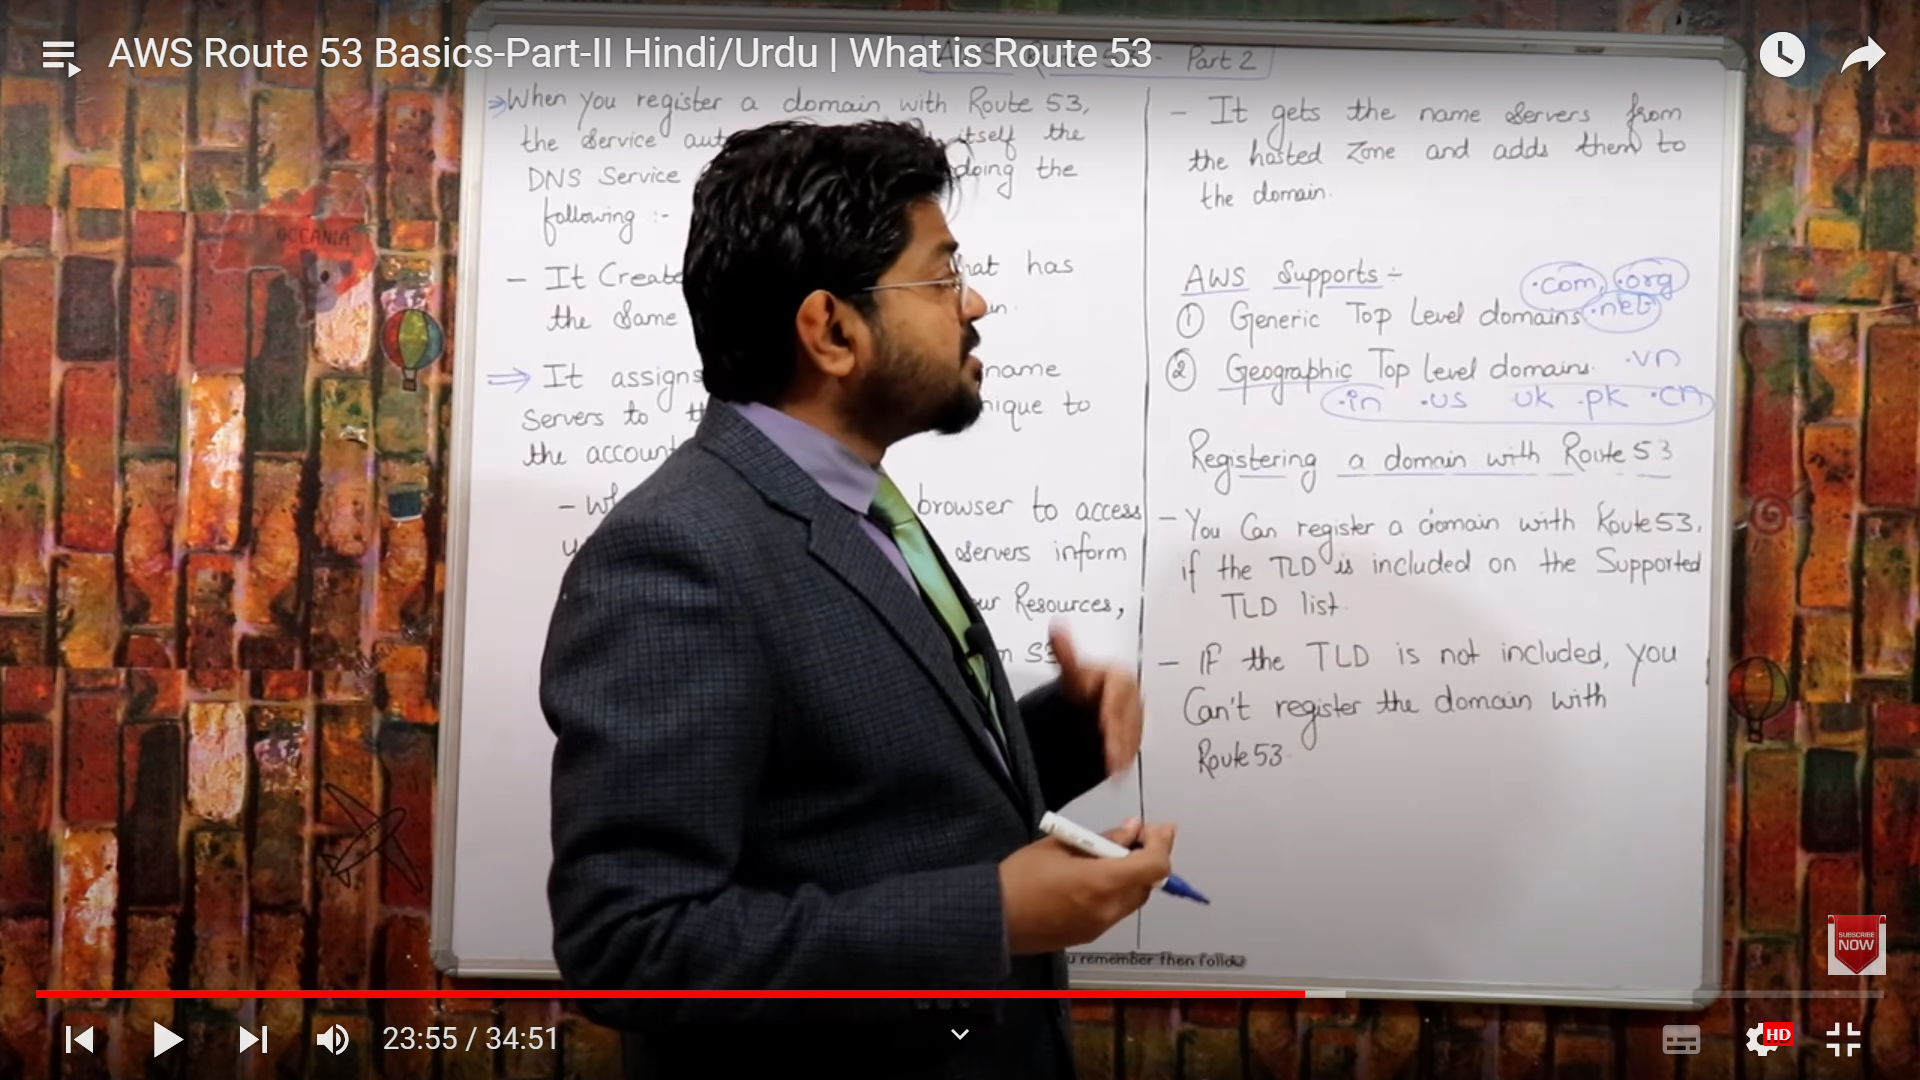 AWS Route 53 Basics-Part-II Hindi/Urdu | What is Route 53
Part 2
When you register a domain with Route 53,
the Service itself the
DNS Service doing the
following :-
- It has
the Same
It assigns name
Servers to to
the account
- browser to access
servers inform
Resources,
- It gets the name servers from
the hosted Zone and adds them to
the domain.
AWS Supports :-
.com, .org
① Generic Top Level domains .net
② Geographic Top Level domains. .vn
.in .us uk .pk .cn
Registering a domain with Route 53
- You Can register a domain with Route 53,
if the TLD is included on the Supported
TLD list.
- IF the TLD is not included, you
Can't register the domain with
Route 53.
remember then
OCEANIA
SUBSCRIBE
NOW
23:55 / 34:51
HD